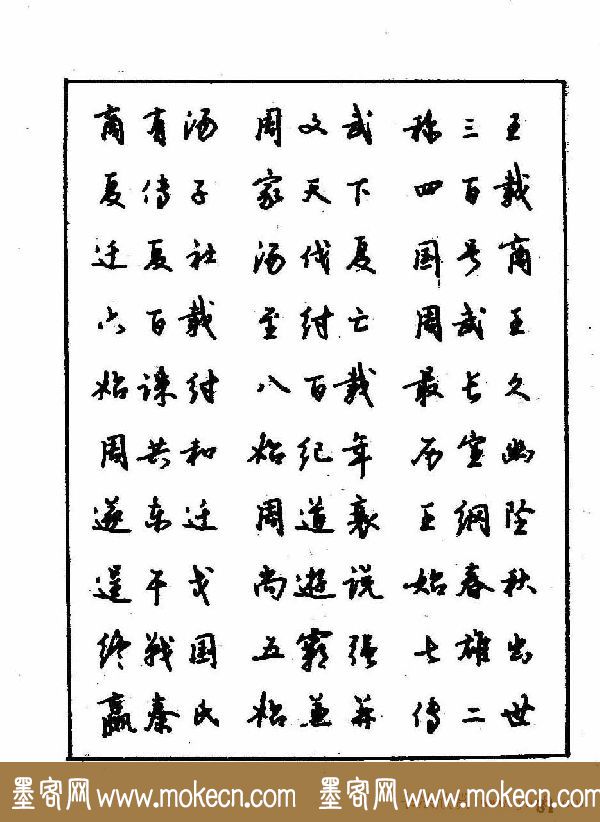 商有汤 周文武 称三王
夏传子 家天下 四百载
迁夏社 汤伐夏 国号商
六百载 至纣亡 周武王
始诛纣 八百载 最长久
周共和 始纪年 历宣幽
遂东迁 周道衰 王纲坠
逞干戈 尚遊说 始春秋
终战国 五霸强 七雄出
嬴秦氏 始兼并 传二世
墨客网 www.mokecn.com 墨客网 www.mokecn.com